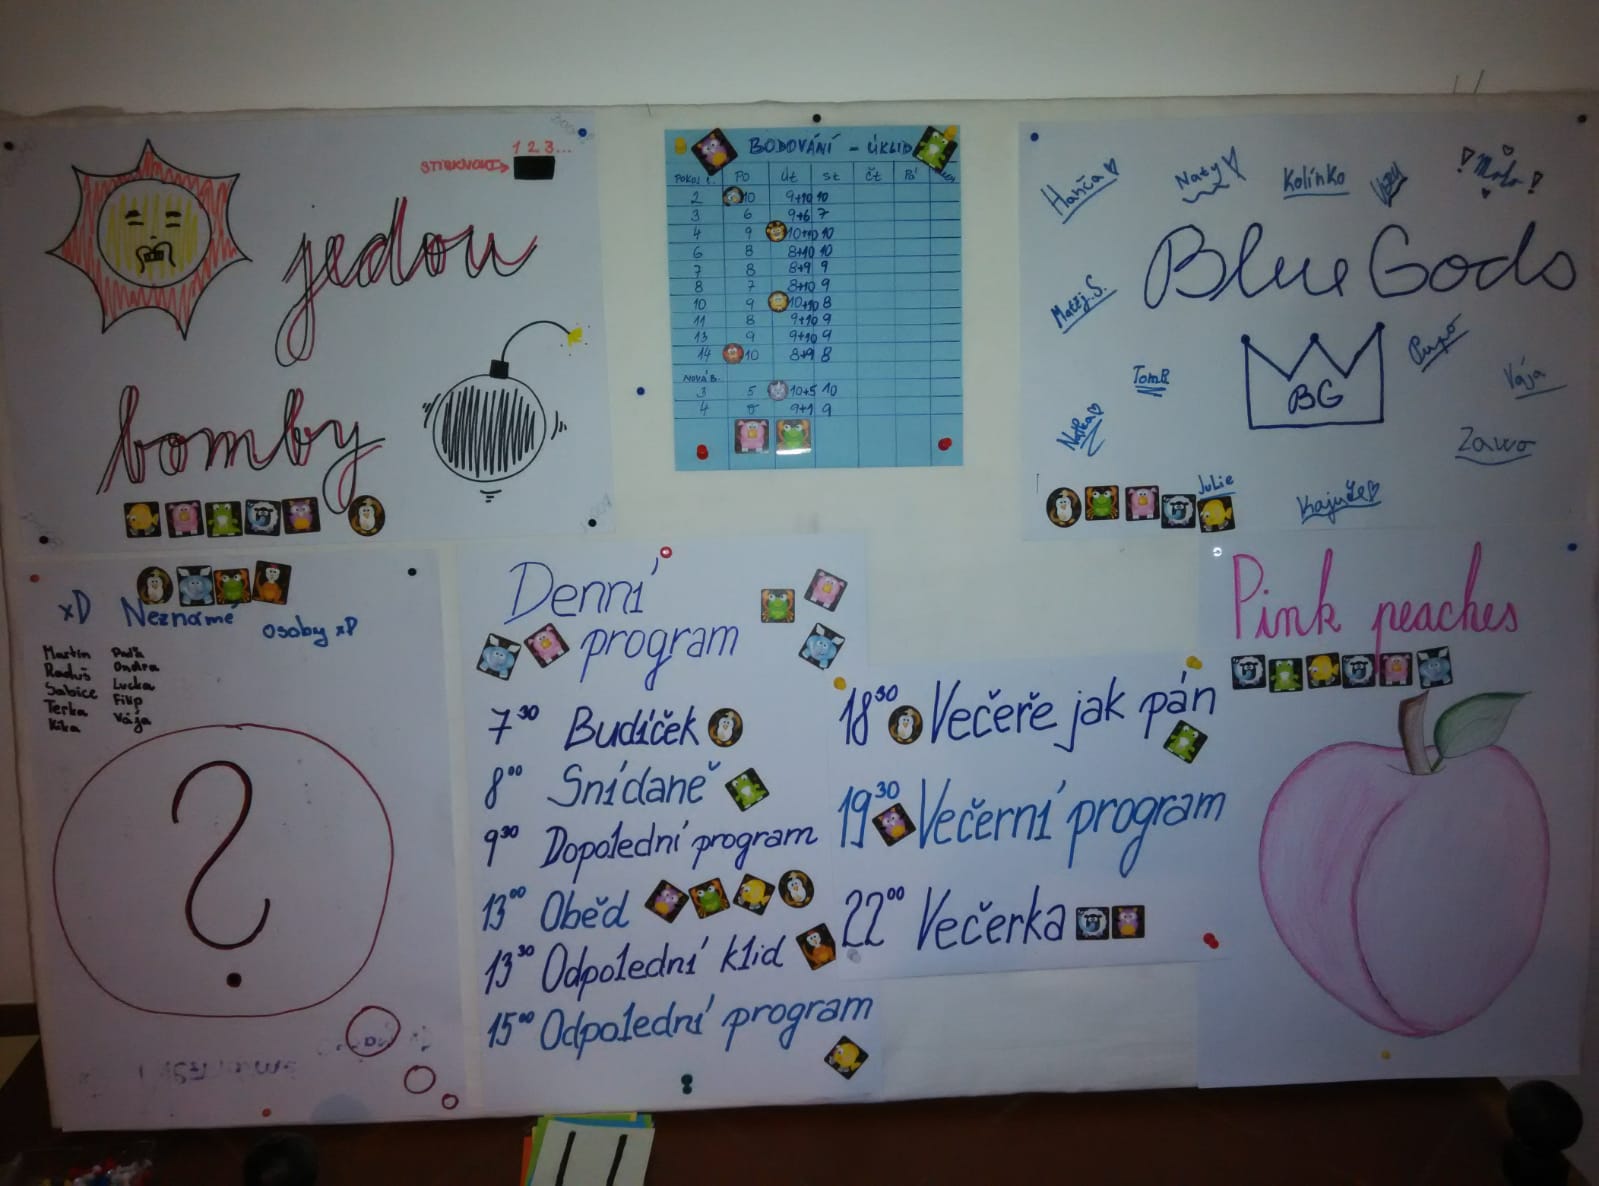 1 2 3...
STISKNOUT→
jedou
bomby
BODOVÁNÍ - ÚKLID
POKOJ Č. PO ÚT ST ČT PÁ
2 10 9+10 10
3 6 9+6 7
4 9 10+10 10
6 8 8+10 10
7 8 8+9 9
8 7 8+10 9
10 9 10+10 8
11 8 9+10 9
13 9 9+10 9
14 10 8+9 8
NOVÁ B.
3 5 10+5 10
4 9+1 9
Hanča
Naty
Kolínko
Blue Gods
Matěj.S.
BG
Pupo
TomB.
Vája
Natka
Zawo
Julie
Kajuše
xD Neznámé osoby xD
Martin
Raduš
Sabice
Terka
Kika
Ondra
Lucka
Filip
Vája
?
Denní
program
7³⁰ Budíček
8⁰⁰ Snídaně
9³⁰ Dopolední program
13⁰⁰ Oběd
13³⁰ Odpolední klid
15⁰⁰ Odpolední program
18³⁰ Večeře jak pán
19³⁰ Večerní program
22⁰⁰ Večerka
Pink peaches
11